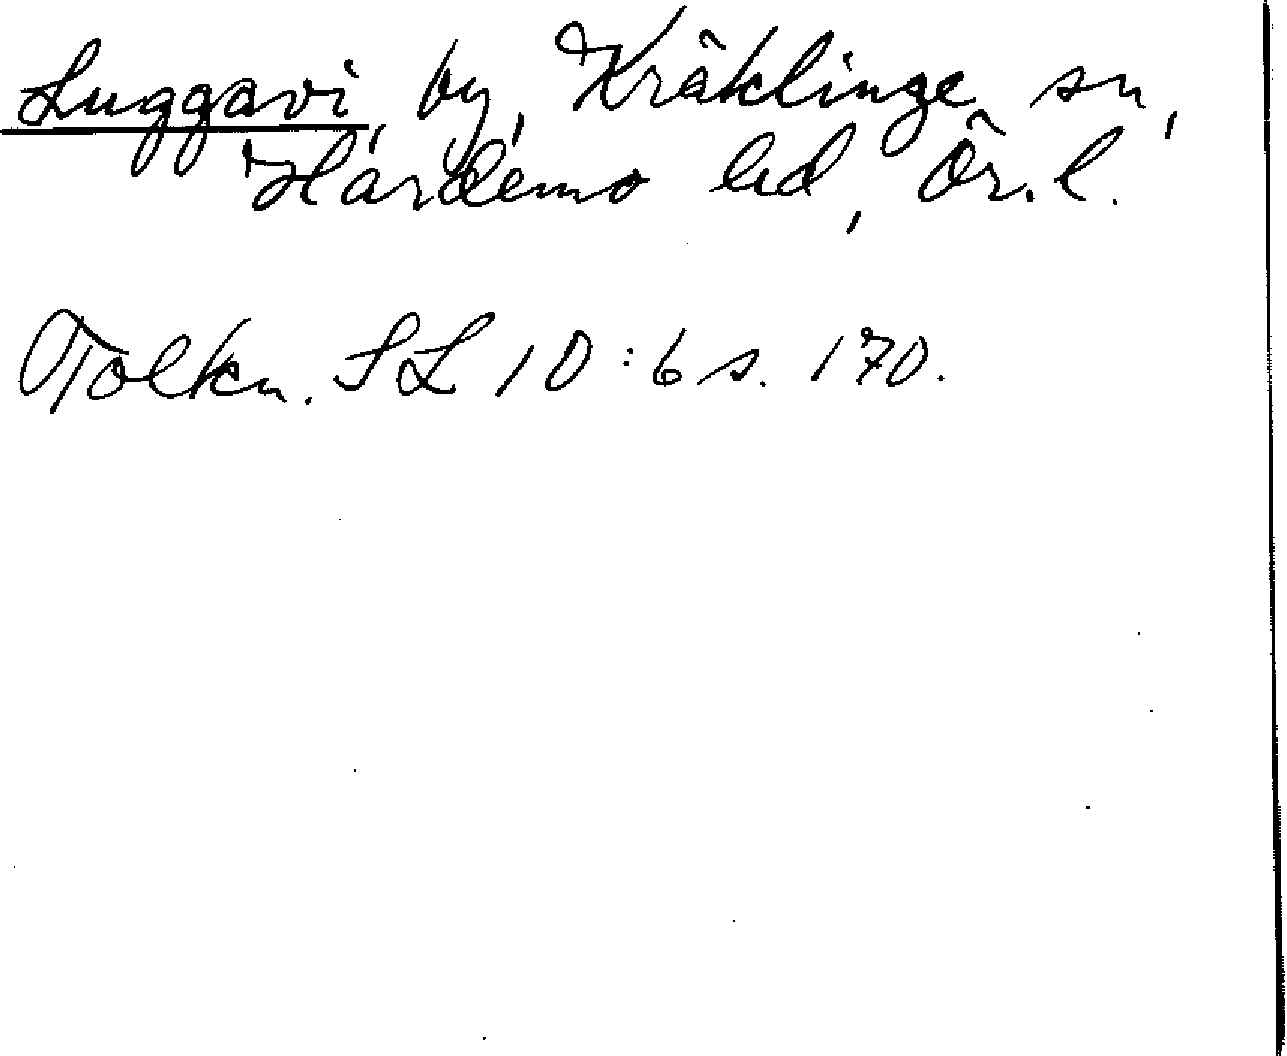 Luggavi, by, Kräklinge sn,
Hardemo hd, Ör. l.
Tolkn. SL 10:6 s. 170.